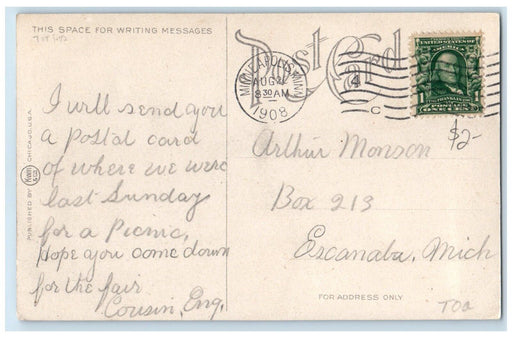 THIS SPACE FOR WRITING MESSAGES
Post Card
MINNEAPOLIS, MINN.
AUG
8 30 AM
1908
4
C
UNITED STATES OF AMERICA
1
$2-
I will send you
a postal card
of where we were
last Sunday
for a Picnic,
Hope you come down
for the fair
Cousin, Eng.
Arthur Monson
Box 213
Escanaba, Mich
PUBLISHED BY
CHICAGO, U.S.A.
FOR ADDRESS ONLY